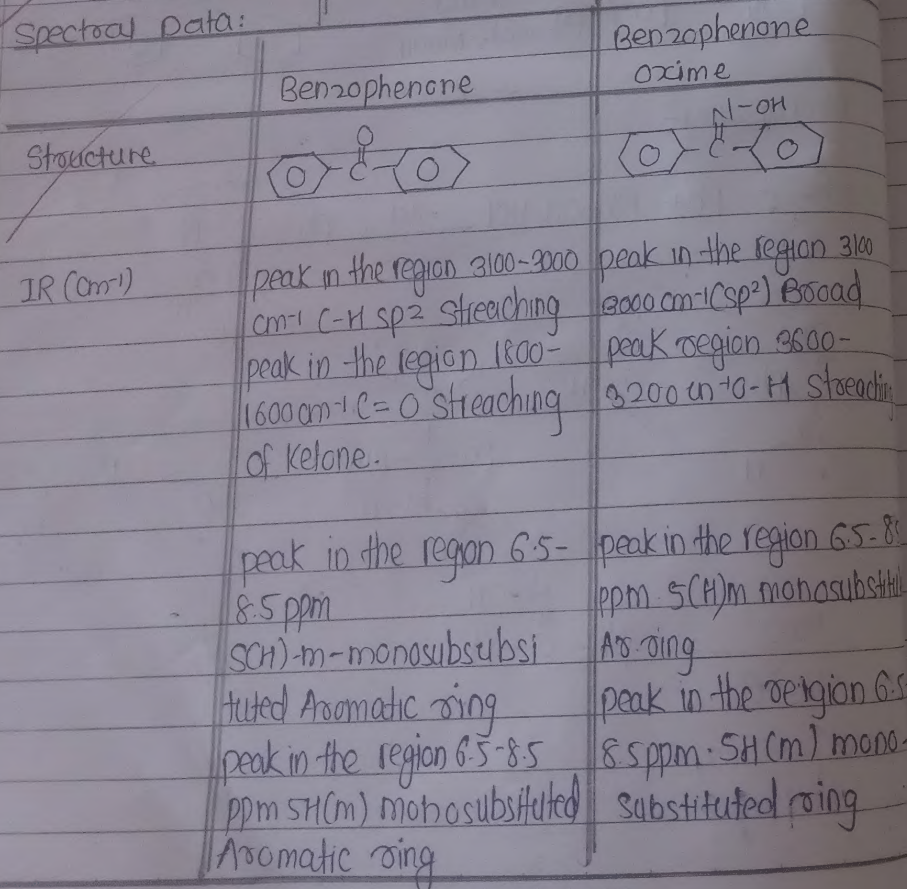 Spectral Data:
Benzophenone
Benzophenone
Oxime
Structure
O
C
N-OH
C
IR (cm-1)
peak in the region 3100-3000
cm-1 C-H sp2 Streaching
peak in the region 1800-
1600cm-1 C=O Streaching
of Ketone.
peak in the region 3100
3000cm-1(sp2) Broad
peak region 3600-
3200 cm-1 O-H Streaching
peak in the region 6.5-
8.5 ppm
5(H)-m-monosubsubsi
tuted Aromatic ring
peak in the region 6.5-8.5
ppm 5H(m) monosubsituted
Aromatic ring
peak in the region 6.5-8
ppm. 5(H)m monosubstitu
Ar. ring
peak in the reigion 6.5
8.5ppm. 5H(m) mono-
substituted ring